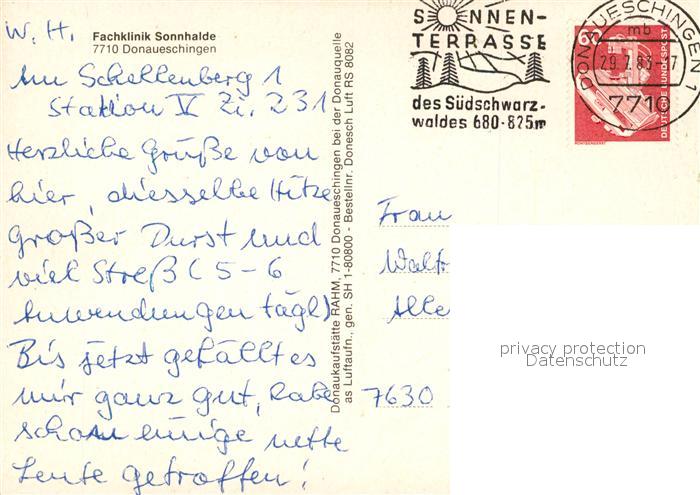 W. H.
Fachklinik Sonnhalde
7710 Donaueschingen
Am Schellenberg 1
Station V Zi. 231
Herzliche Grüße von
hier, diesselbe Hitze
großer Durst und
viel Streß (5-6
Anwendungen tägl)
Bis jetzt gefällt es
mir ganz gut, habe
schon einige nette
Leute getroffen!
Donaukaufstätte RAHM, 7710 Donaueschingen bei der Donauquelle
as Luftaufn., gen. SH 1-80800 - Bestellnr. Donesch Luft RS 8082
SONNEN-
TERRASSE
des Südschwarz-
waldes 680-825m
DONAUESCHINGEN 1
mb
29.7.83-7
7710
60
DEUTSCHE BUNDESPOST
RÖNTGENGERÄT
Frau
Waltr
Alle
7630
privacy protection
Datenschutz